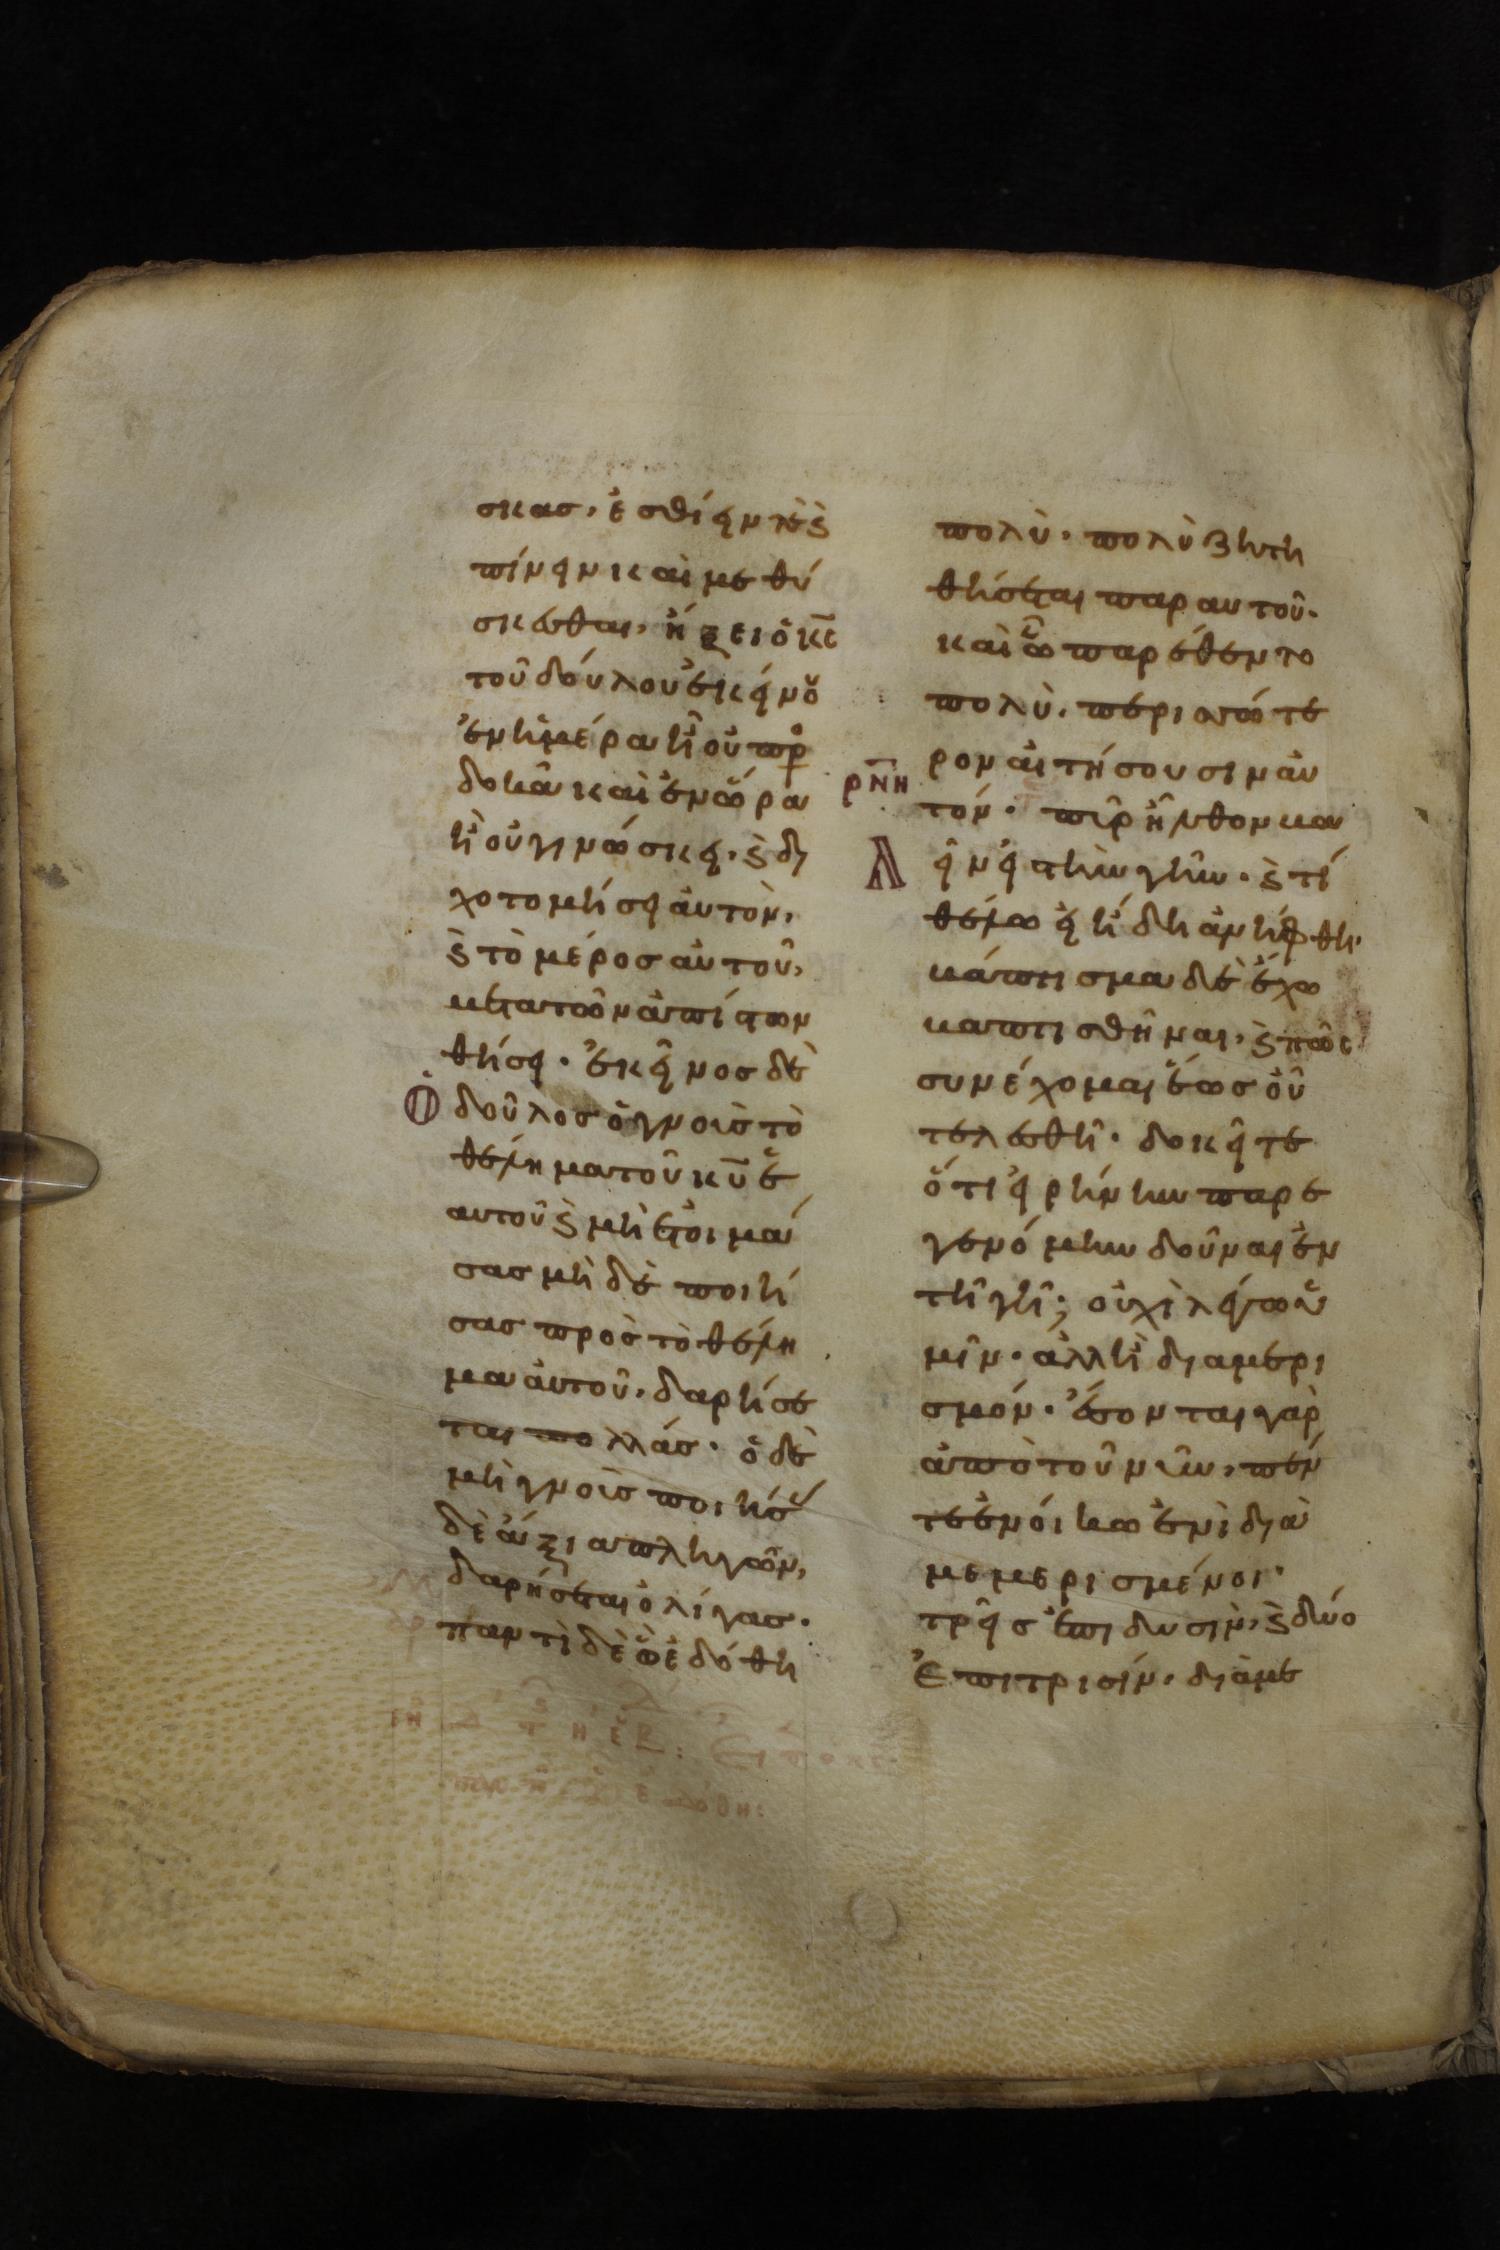 σκας, ἐσθίειν τὲ ϗ
πίνειν καὶ μεθύ
σκεσθαι, ἥξει ὁ κ̅ς̅
τοῦ δούλου ἐκείνου
ἐν ἡμέρα ἧ οὐ προ
δοκᾶ καὶ ἐν ὥρα
ἧ οὐ γινώσκει, ϗ δι
χοτομήσει αὐτὸν,
ϗ τὸ μέρος αὐτοῦ,
μετα τῶν ἀπίστων
θήσει. ἐκεῖνος δὲ
Ὁ δοῦλος ὁ γνοὺς τὸ
θέλημα τοῦ κ̅υ̅ ἑ
αυτοῦ ϗ μὴ ἑτοιμά
σας μὴ δὲ ποιή
σας πρὸς τὸ θέλη
μα αὐτοῦ, δαρήσε
ται πολλάς. ὁ δὲ
μὴ γνοὺς ποιήσας
δὲ ἄξια πληγῶν,
δαρήσεται ὀλίγας.
παντὶ δὲ ὧ ἐδόθη
πολὺ. πολὺ ζητη
θήσεται παρ αυτοῦ.
καὶ ὧ παρέθεντο
πολὺ, περισσότε
ρον αἰτήσουσιν αὐ
ρ̅ν̅η̅ τόν. πῦρ ἦλθον βα
λεῖν εἰς τὴν γῆν. ϗ τί
θέλω εἰ ἤδη ἀνήφθη,
βάπτισμα δὲ ἔχω
βαπτισθῆναι, ϗ πῶς
συνέχομαι ἕως οὗ
τελεσθῆ. δοκεῖτε
ὅτι εἰρήνην παρε
γενόμην δοῦναι ἐν
τῆ γῆ; οὐχὶ λέγω ὑ
μῖν. ἀλλ ἢ διαμερι
σμόν. ἔσονται γὰρ
ἀπὸ τοῦ νῦν, πέν
τε ἐν οἴκω ἑνὶ δια
μεμερισμένοι.
τρεῖς ἐπι δυσὶν, ϗ δύο
ἐπι τρισίν, διαμε